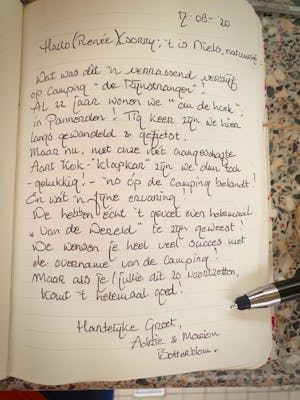 17-08-'20
Hallo (Renée) (sorry; 't is Niels, natuurlijk
Wat was dit 'n verrassend verblijf
op Camping "de Rijnstrangen"!
Al 22 jaar wonen we "om de hoek",
in Pannerden! Tig keer zijn we hier
langs gewandeld & gefietst.
Maar nu, met onze net aangeschafte
Aart Kok-"klapkar" zijn we dan toch
-gelukkig!- 'ns óp de Camping beland!
En wat 'n fijne ervaring!
We hebben echt 't gevoel even helemaal
"Van de Wereld" te zijn geweest!
We wensen je heel veel succes met
de overname van de Camping!
Maar als je/jullie dit zo voortzetten,
komt 't helemaal goed!
Hartelijke Groet,
& Marion
Botterblom.